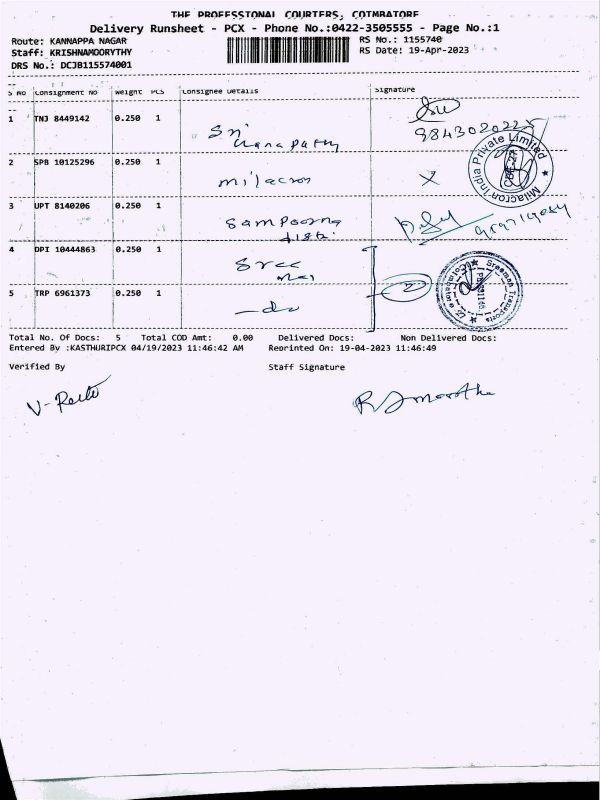 THE PROFESSIONAL COURIERS, COIMBATORE
Delivery Runsheet - PCX - Phone No.:0422-3505555 - Page No.:1
Route: KANNAPPA NAGAR
RS No.: 1155740
Staff: KRISHNAMOORYTHY
RS Date: 19-Apr-2023
DRS No.: DCJB115574001
S No Consignment No Weight PCS Consignee Details Signature
1 TNJ 8449142 0.250 1 Sri Ganapathy 9843020225
2 SPB 10125296 0.250 1 milacron X
Milacron India Private Limited
CBE-27
3 UPT 8140206 0.250 1 Sampoorna
4 DPI 10444863 0.250 1 Sree
5 TRP 6961373 0.250 1 - do
2
Sreeman Transports
Coimbatore
Total No. Of Docs: 5 Total COD Amt: 0.00 Delivered Docs: Non Delivered Docs:
Entered By :KASTHURIPCX 04/19/2023 11:46:42 AM Reprinted On: 19-04-2023 11:46:49
Verified By Staff Signature